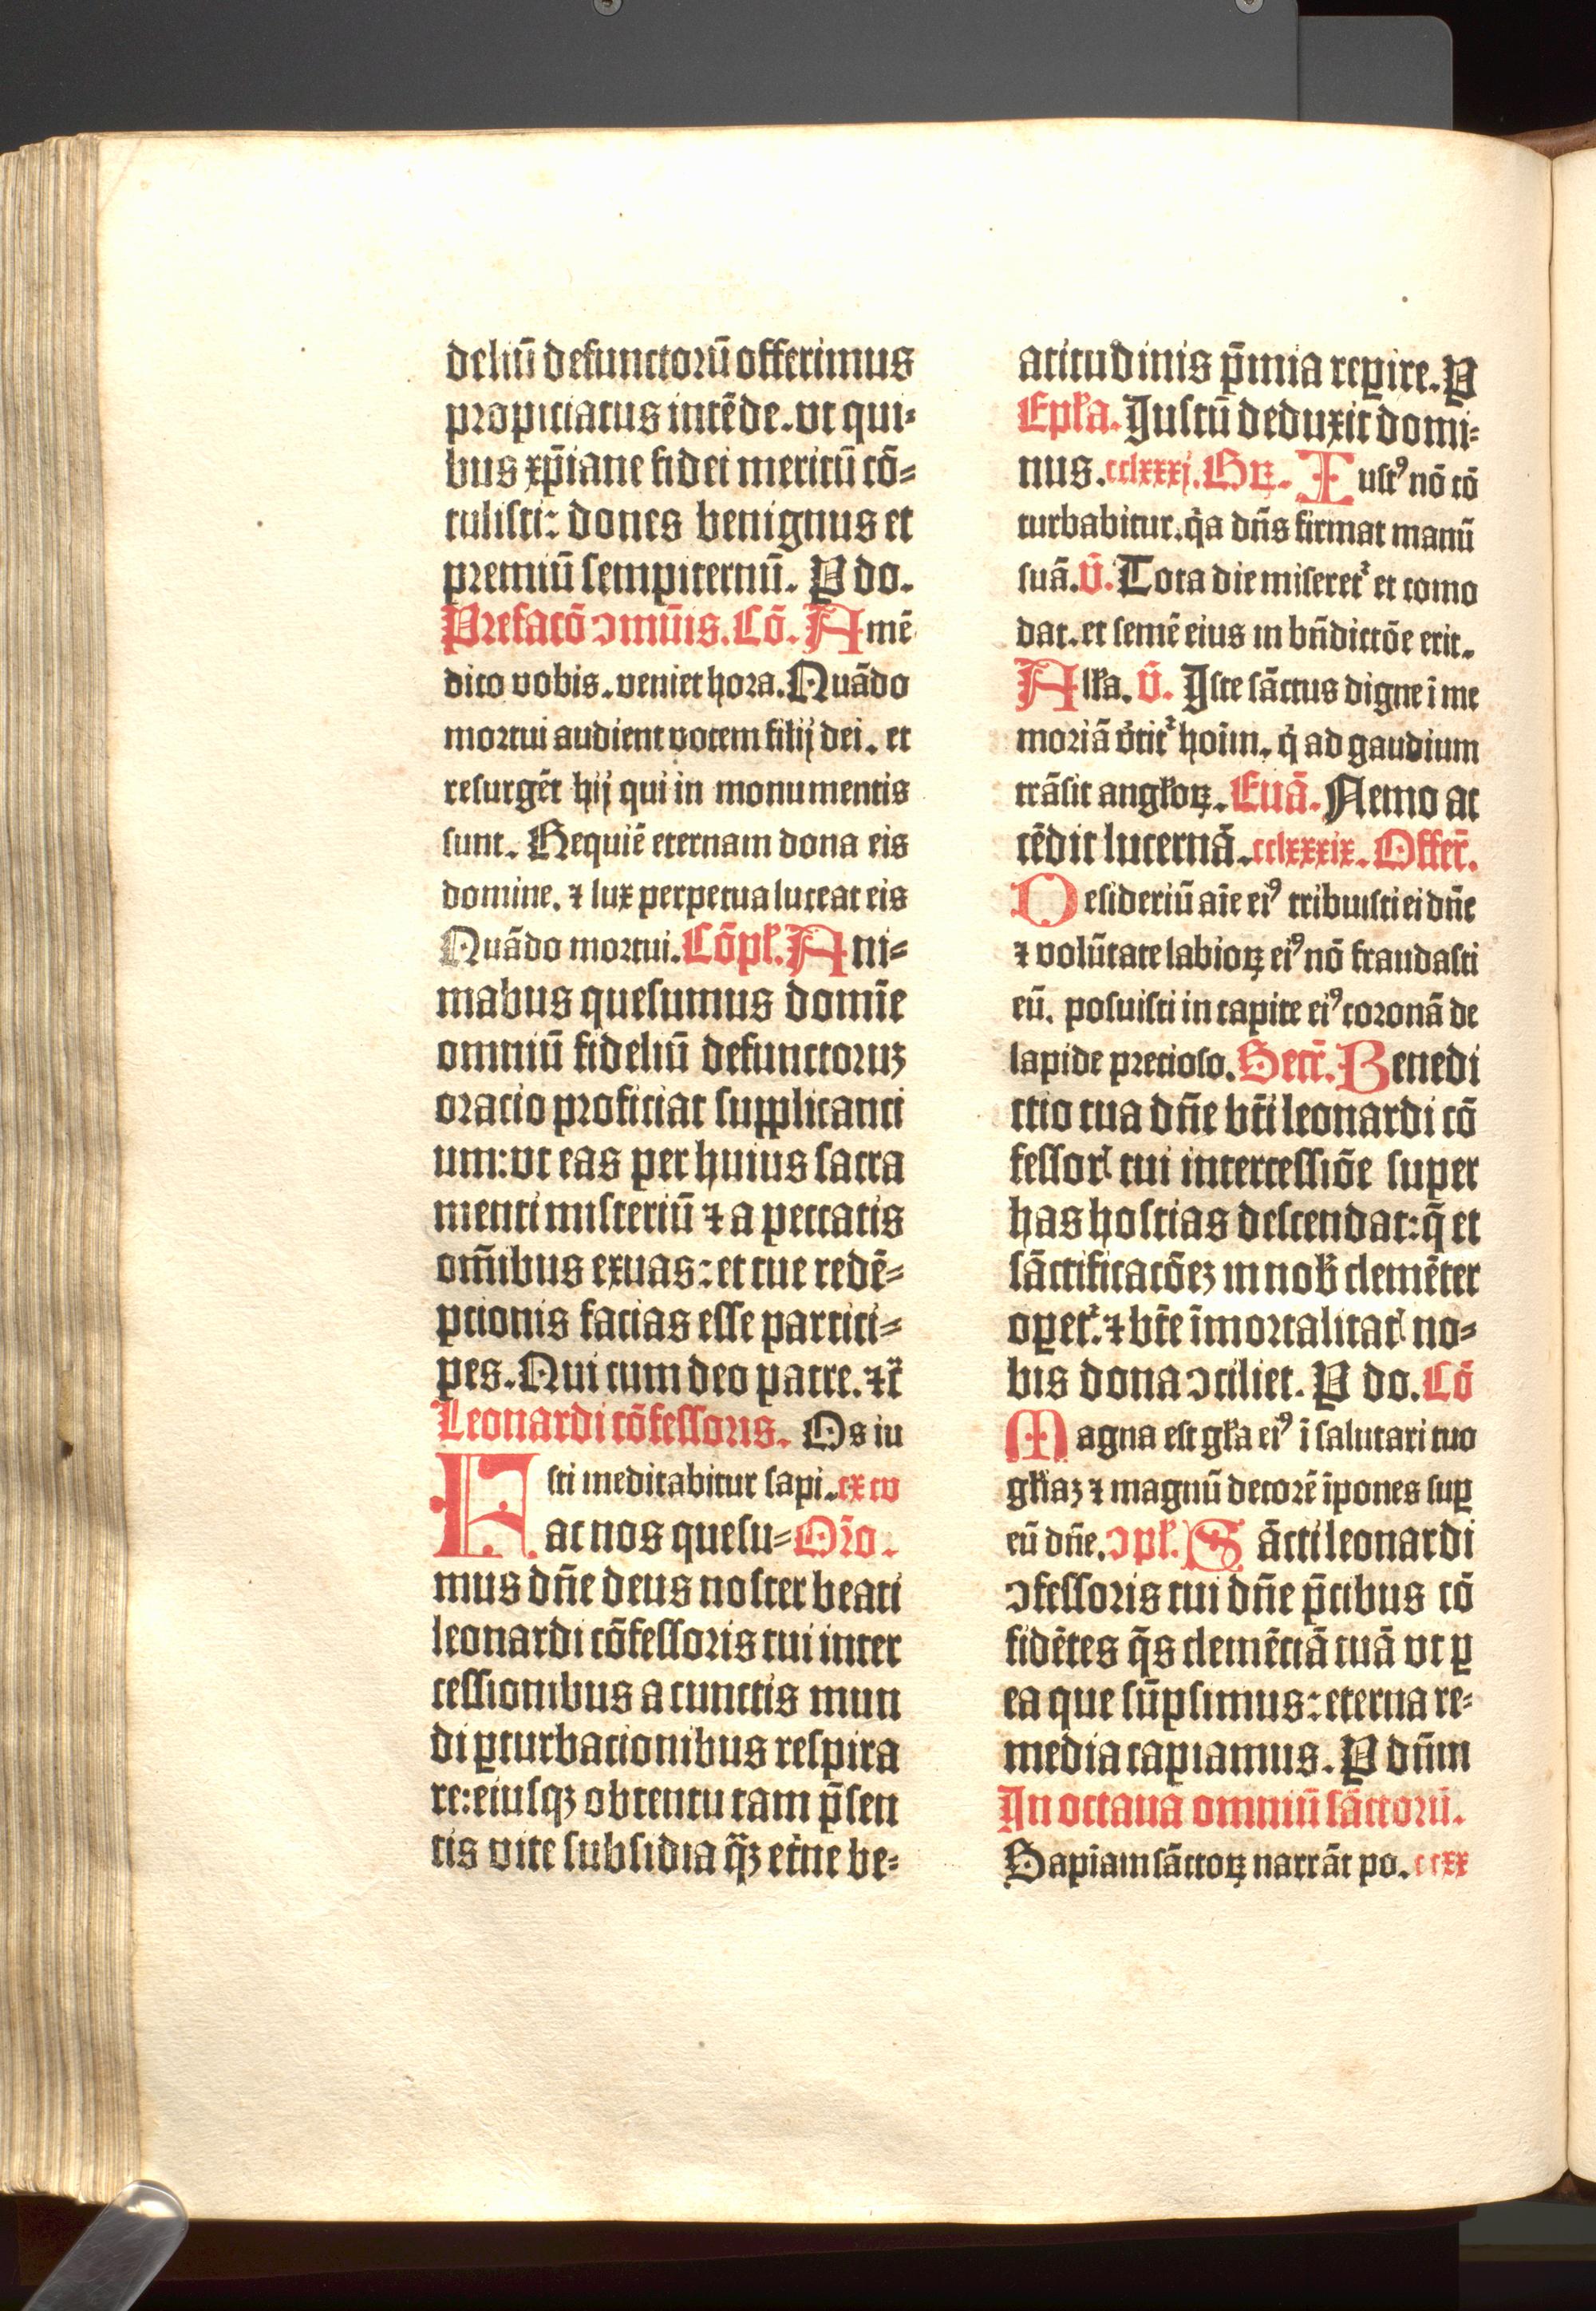 deliū defunctorū offerimus
propiciatus intēde. vt qui⸗
bus xp̄iane fidei meritū cō⸗
tulisti: dones benignus et
premiū sempiternū. P do.
Prefacō ꝯmūis. Cō. Amē
dico vobis. veniet hora. Quādo
mortui audient vocem filij dei. et
resurgēt hij qui in monumentis
sunt. Requiē eternam dona eis
domine. ⁊ lux perpetua luceat eis
Quādo mortui. Cōpł. Ani⸗
mabus quesumus domīe
omniū fideliū defunctoruꝫ
oracio proficiat supplicanci
um: vt eas per huius sacra
menti misteriū ⁊ a peccatis
om̄ibus exuas: et tue redē⸗
ptionis facias esse partici⸗
pes. Qui cum deo patre. ⁊c̄
Leonardi cōfessoris. Os iu
sti meditabitur sapi. cxcv
Fac nos quesu⸗ Oro.
mus dn̄e deus noster beati
leonardi cōfessoris tui inter
cessionibus a cunctis mun
di ꝑturbacionibus respira
re: eiusqꝫ obtentu tam p̄sen
tis vite subsidia q̄ꝫ et̄ne be⸗
atitudinis p̄mia reꝑire. P
Epła. Justū deduxit domi⸗
nus. cclxxxj. Gꝝ. Iustꝰ nō cō
turbabitur. q̓a dn̄s firmat manū
suā. V̄. Tota die miseretᷣ et como
dat. et semē eius in bn̄dictōe erit.
Ałła. V̄. Iste sāctus digne ī me
moriā v̓titᷣ hoīm. q̓ ad gaudium
trāsit angłoꝝ. Euā. Nemo ac
cēdit lucernā. cclxxxix. Offer̄.
Desideriū aīe eiꝰ tribuisti ei dn̄e
⁊ volūtate labioꝝ eiꝰ nō fraudasti
eū. posuisti in capite eiꝰ coronā de
lapide precioso. Secr̄. Benedi
ctio tua dn̄e bt̄i leonardi cō
fessorꝭ tui intercessiōe super
has hostias descendat: q̄ et
sāctificacōeꝫ in nob̄ clemēter
oꝑetᷣ. ⁊ bt̄e īmortalitatꝭ no⸗
bis dona ꝯciliet. P do. Cō
Magna est gła eiꝰ ī salutari tuo
głiaꝫ ⁊ magnū decorē īpones suꝑ
eū dn̄e. ꝯpł. Sācti leonardi
ꝯfessoris tui dn̄e p̄cibus cō
fidētes q̄s clemēciā tuā vt ꝑ
ea que sūpsimus: eterna re⸗
media capiamus. P dn̄m
In octaua omniū sāctorū.
Sapiam sāctoꝝ narrāt po. ccxx